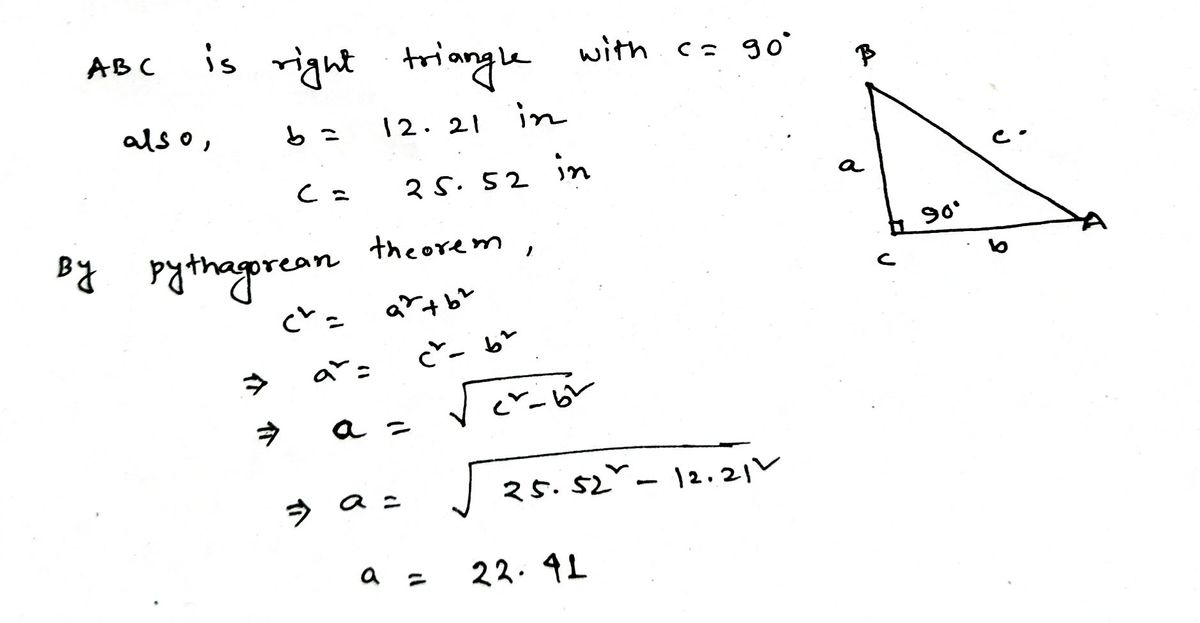 ABC is right triangle with C = 90°
also, b = 12.21 in
c = 25.52 in
By pythagorean theorem,
c² = a² + b²
⇒ a² = c² - b²
⇒ a = √c² - b²
⇒ a = √25.52² - 12.21²
a = 22.41
B
c.
a
90°
A
C
b